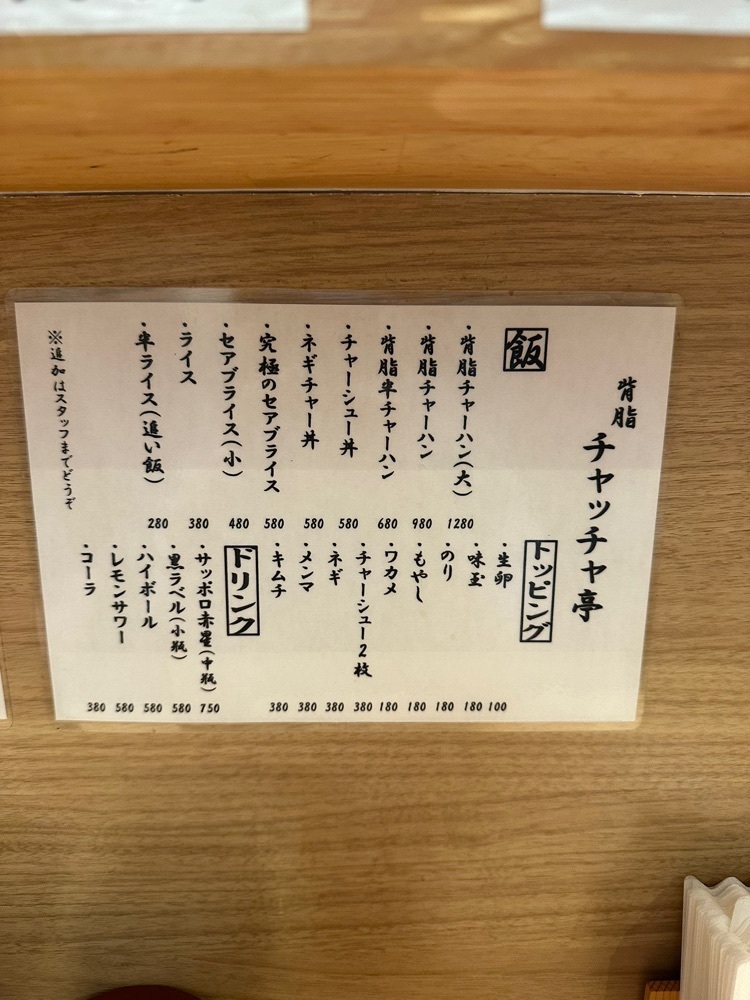 背脂 チャッチャ亭
飯
・背脂チャーハン(大) 1280
・背脂チャーハン 980
・背脂半チャーハン 680
・チャーシュー丼 580
・ネギチャー丼 580
・究極のセアブライス 580
・セアブライス(小) 480
・ライス 380
・半ライス(追い飯) 280
※追加はスタッフまでどうぞ
トッピング
・生卵 100
・味玉 180
・のり 180
・もやし 180
・ワカメ 180
・チャーシュー2枚 380
・ネギ 380
・メンマ 380
・キムチ 380
ドリンク
・サッポロ赤星(中瓶) 750
・黒ラベル(小瓶) 580
・ハイボール 580
・レモンサワー 580
・コーラ 380